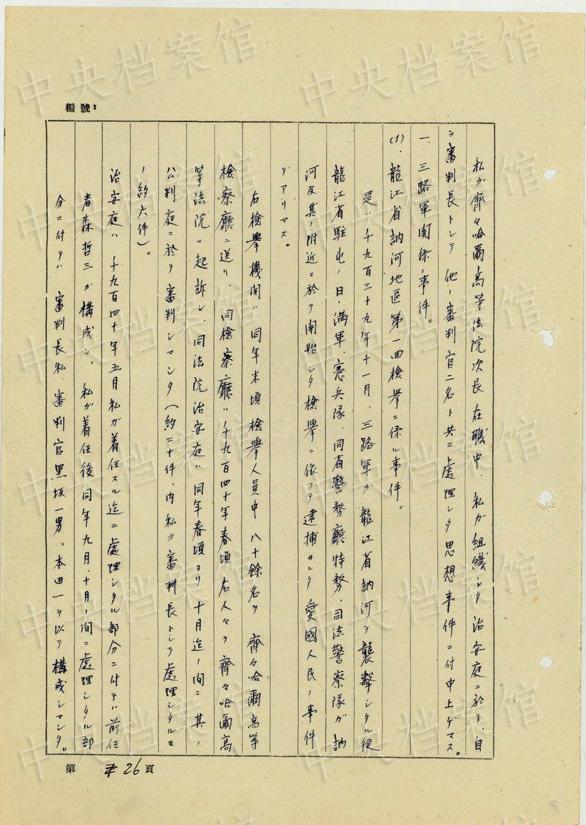 編號:
私ガ齊々哈爾高等法院次長在職中、私ガ組織シタ治安庭ニ於テ、自
ラ審判長トシテ他ノ審判官二名ト共ニ處理シタ思想事件ニ付申上ゲマス。
一、三路軍関係ノ事件。
(1)、龍江省訥河地區第一回検挙ニ係ル事件。
是ハ千九百三十九年十一月、三路軍ガ龍江省訥河ヲ襲撃シタル後
龍江省駐屯ノ日、満軍、憲兵隊、同省警務廳特務、司法警察隊ガ訥
河及其ノ附近ニ於テ開始シタ検挙ニ依ツテ逮捕サレタ愛國人民ノ事件
デアリマス。
右検挙機関ハ同年末頃検挙人員中八十餘名ヲ齊々哈爾高等
検察廳ニ送リ、同検察廳ハ千九百四十年春頃右人々ヲ齊々哈爾高
等法院ニ起訴シ、同法院治安庭ハ同年春頃ヨリ十月迄ノ間ニ其ノ
公判庭ニ於テ審判シマシタ（約二十件、内私ガ審判長トシテ處理シタルモ
ノ約六件）。
治安庭ハ千九百四十年五月私ガ着任スル迄ニ處理シタル部分ニ付テハ前任
者森哲三ガ構成シ、私ガ着任後同年九月、十月ノ間ニ處理シタル部
分ニ付テハ審判長私、審判官黒坂一男、本田一ヲ以テ構成シマシタ。
第 26 頁
中央档案馆
中央档案馆
中央档案馆
中央档案馆
中央档案馆
中央档案馆